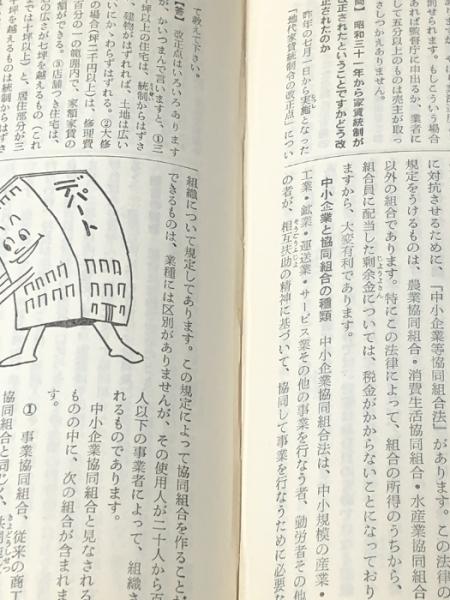 に対抗させるために、「中小企業等協同組合法」があります。この法律の
規定をうけるものは、農業協同組合・消費生活協同組合・水産業協同組合
以外の組合であります。特にこの法律によって、組合の所得のうちから、
組合員に配当した剰余金については、税金がかからないことになっており
ますから、大変有利であります。
中小企業と協同組合の種類 中小企業協同組合法は、中小規模の産業・
工業・鉱業・運送業・サービス業その他の事業を行なう者、勤労者その他
の者が、相互扶助の精神に基づいて、協同して事業を行なうために必要な
組織について規定してあります。この規定によって協同組合を作ることが
できるものは、業種には区別がありませんが、その使用人が二十人から百
人以下の事業者によって、組織さ
れるものであります。
中小企業協同組合と見なされる
ものの中に、次の組合が含まれま
① 事業協同組合、従来の商工
協同組合と同じく、共同
デパート
せられます。もしこういう場合
あれば監督庁に申出るか、業者に
して五分以上のものは売主が取っ
さしつかえありません。
問】 昭和三十一年から家賃統制が
改正されたということですがどう改
正されたのか
昨年の七月一日から実施となった
「地代家賃統制令の改正点」につい
て教えて下さい。
【答】 改正点はいろいろあります
が、かいつまんで言いますと、①三
坪以上の住宅は、統制からはずさ
、建物がはずれれば、土地は広い
にかゝわらずはずれる。②大修
の場合（坪二千円以上）は、修理費
百分の一の範囲内で、家額家賃の
額ができる。③店舗つき住宅は、
の広さが七坪を越えるもの（これ
では十坪以上）と、居住部分が三
坪を越えるものは統制からはず